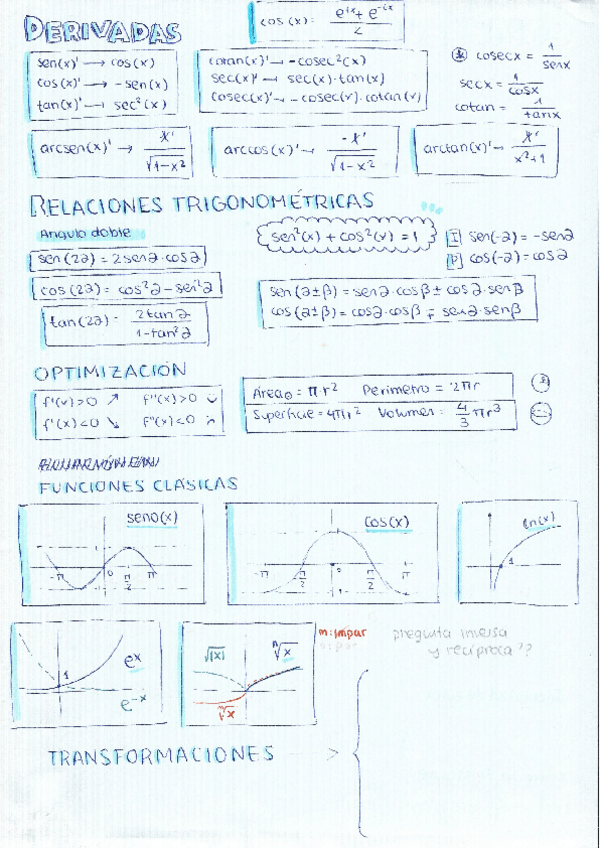 DERIVADAS
cos(x): (e^ix + e^-ix)/2
sen(x)' → cos(x)
cos(x)' → -sen(x)
tan(x)' → sec²(x)
cotan(x)' → -cosec²(x)
sec(x)' → sec(x)·tan(x)
cosec(x)' → -cosec(x)·cotan(x)
* cosecx = 1/senx
secx = 1/cosx
cotan = 1/tanx
arcsen(x)' → x'/√(1-x²)
arccos(x)' → -x'/√(1-x²)
arctan(x)' → x'/(x²+1)
RELACIONES TRIGONOMÉTRICAS
Angulo doble
sen(2a) = 2sena·cosa
cos(2a) = cos²a - sen²a
tan(2a) = 2tana/(1-tan²a)
sen²(x) + cos²(x) = 1
[I] sen(-a) = -sena
[P] cos(-a) = cosa
sen(a±β) = sena·cosβ ± cosa·senβ
cos(a±β) = cosa·cosβ ∓ sena·senβ
OPTIMIZACIÓN
f'(x)>0 ↗ f''(x)>0 ∪
f'(x)<0 ↘ f''(x)<0 ∩
Área○ = π·r² Perímetro = 2πr
Superficie = 4πr² Volumen: 4/3 πr³
FUNCIONES CLÁSICAS
seno(x)
-π 0 π/2 π
cos(x)
-π -π/2 0 π/2 π
ln(x)
1
e^x
1
e^-x
√|x| ⁿ√x
ᵐ√x
m:impar
n:par
pregunta inversa
y recíproca??
TRANSFORMACIONES >